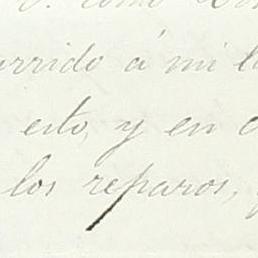 como
rrido á mi
esto, y en
los reparos,